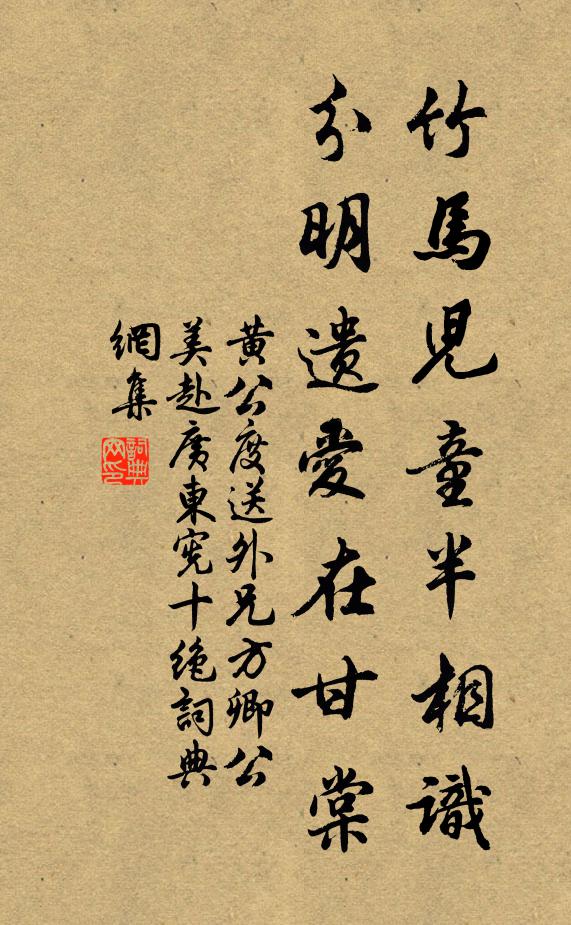 竹馬兒童半相識
分明遺愛在甘棠
黃公度送外兄方卿公
美赴廣東憲十絕詞典
網集
詞典
网印